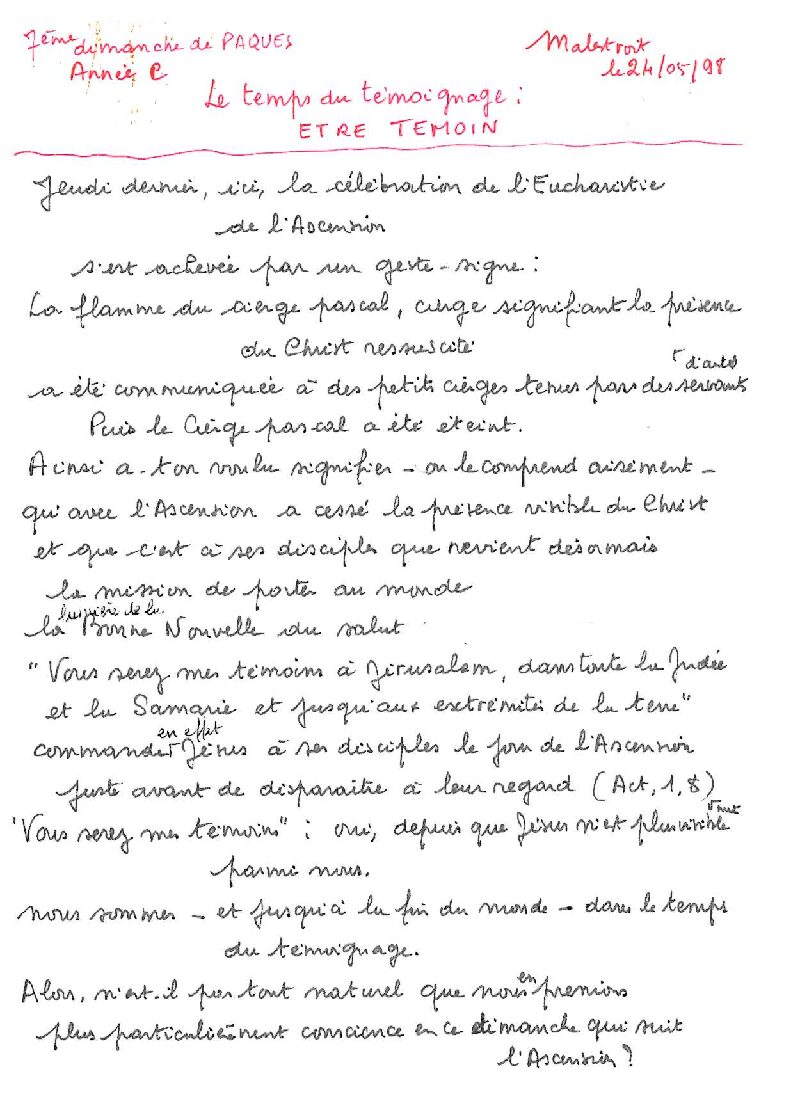 7ème dimanche de PAQUES
Année C
Malestroit
le 24/05/98
Le temps du témoignage :
ETRE TEMOIN
Jeudi dernier, ici, la célébration de l'Eucharistie
de l'Ascension
s'est achevée par un geste-signe :
La flamme du cierge pascal, cierge signifiant la présence
du Christ ressuscité
d'autel
a été communiquée à des petits cierges tenus par des servants
Puis le Cierge pascal a été éteint.
Ainsi a-t-on voulu signifier - on le comprend aisément -
qu'avec l'Ascension a cessé la présence visible du Christ
et que c'est à ses disciples que revient désormais
la mission de porter au monde
lumière de la
la Bonne Nouvelle du salut
"Vous serez mes témoins à Jérusalem, dans toute la Judée
et la Samarie et jusqu'aux extrémités de la terre"
en effet
commande Jésus à ses disciples le jour de l'Ascension
juste avant de disparaître à leur regard (Act, 1, 8)
"Vous serez mes témoins" : oui, depuis que Jésus n'est plus visible
parmi nous.
nous sommes - et jusqu'à la fin du monde - dans le temps
du témoignage.
en
Alors, n'est-il pas tout naturel que nous prenions
plus particulièrement conscience en ce dimanche qui suit
l'Ascension ?